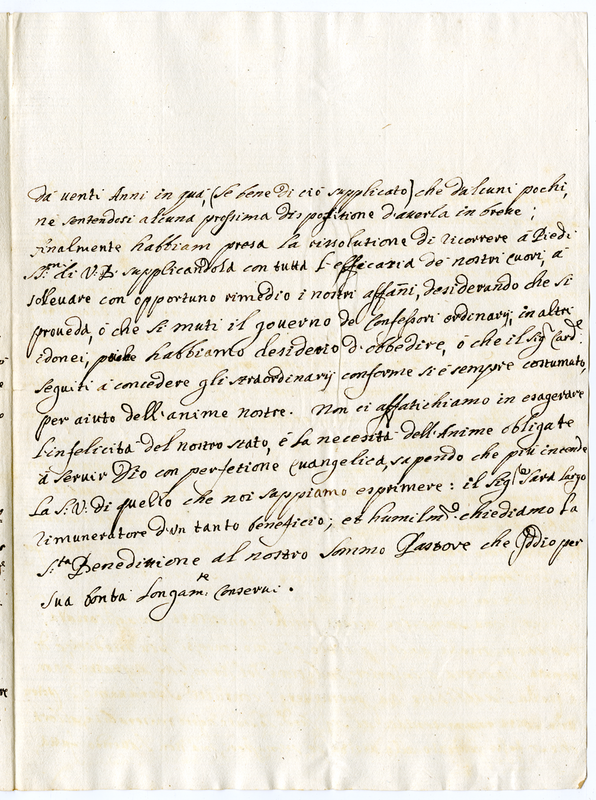 da venti Anni in quà, (se bene di ciò supplicato) che da lcuni pochi,
ne sentendosi alcuna prossima dispositione d'averla in breve;
finalmente habbiam presa la rissolutione di ricorrere à Piedi
SS.mi di V.B. supplicandola con tutta l'efficacia de nostri cuori, à
sollevare con opportuno rimedio i nostri affani, desiderando che si
proveda, ò che si muti il governo de Confessori ordinarij, in altri
idonei, habbiamo desiderio d'obbedire, ò che il Sig.r Card.e
seguiti à concedere gli straordinarij conforme si è sempre costumato,
per aiuto dell'anime nostre. Non ci affatichiamo in esagerare
l'infelicità del nostro stato, è la necesità dell'Anime obligate
à servir Dio con perfetione Evangelica, sapendo che più intende
la S.V. di quello che noi suppiamo esprimere: il Sig.re Sarà largo
rimuneratore d'un tanto beneficio; et humilm.te chiediamo la
S.ta Beneditione al nostro Sommo Pastore che Iddio per
sua bontà longam.te Conservi.